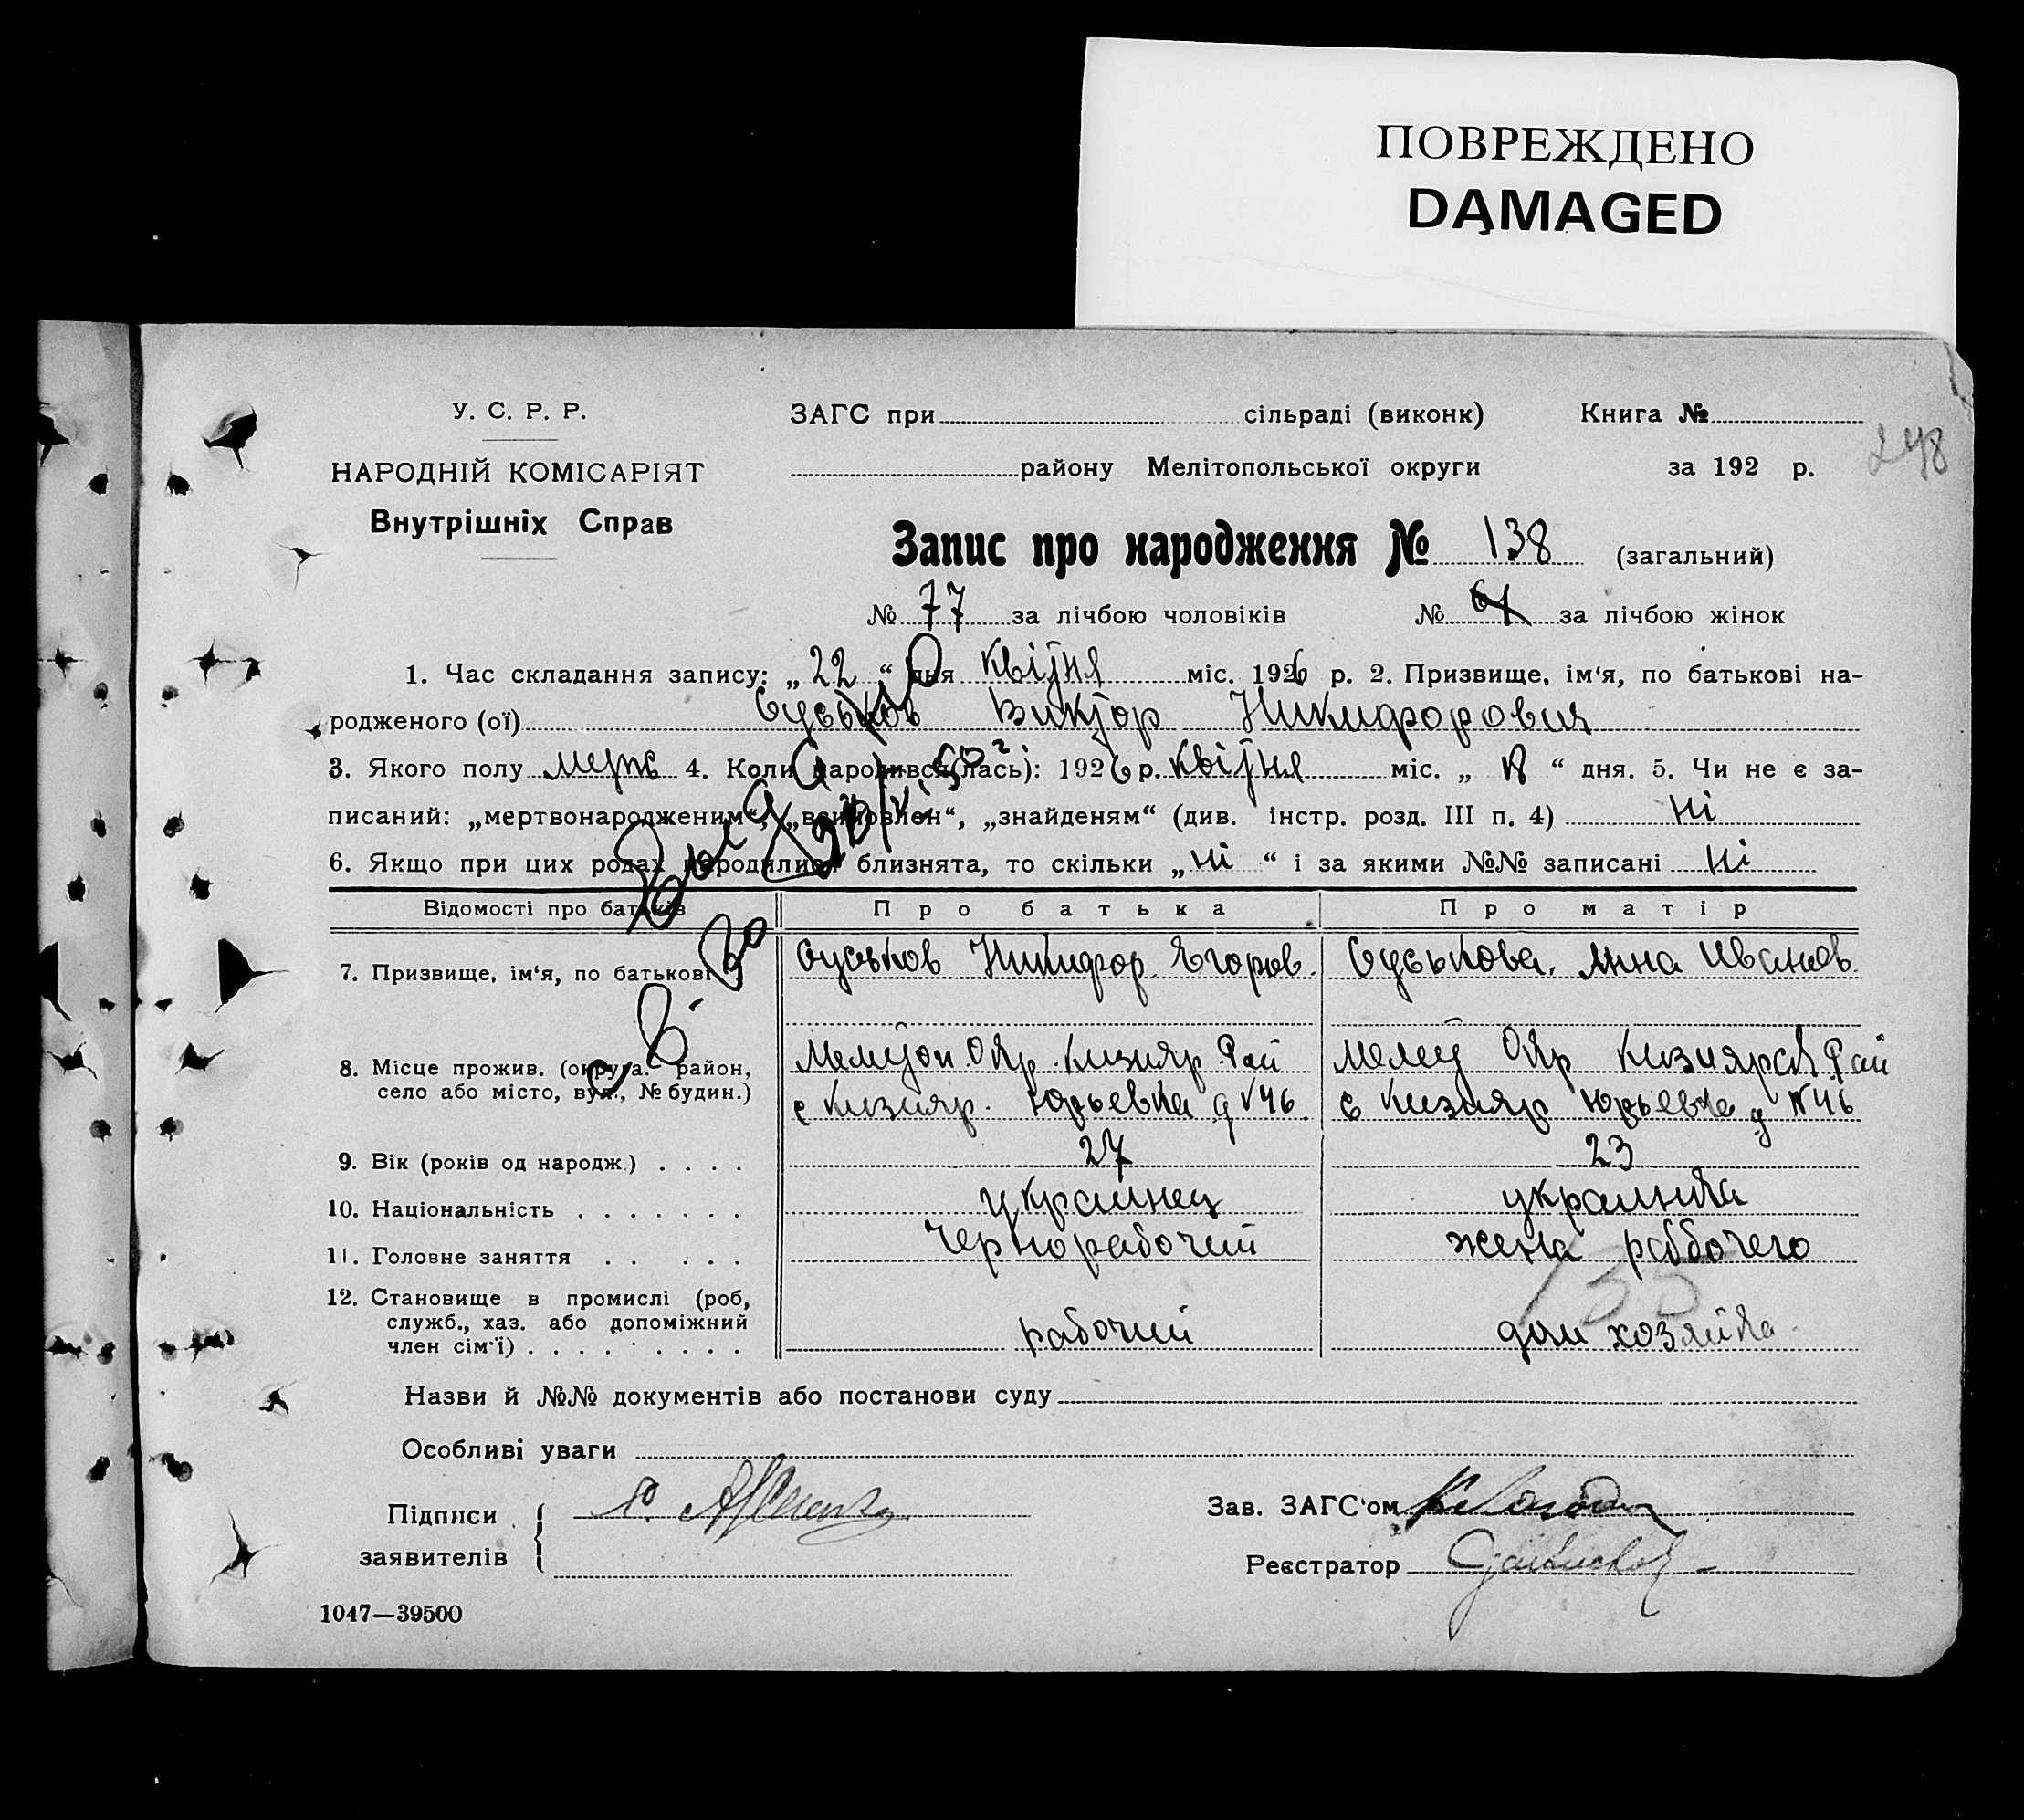 ПОВРЕЖДЕНО
DAMAGED
У. С. Р. Р.
НАРОДНІЙ КОМІСАРІЯТ
Внутрішніх Справ
ЗАГС при сільраді (виконк) Книга №
району Мелітопольської округи за 192 р.
248
Запис про народження № 138 (загальний)
№ 77 за лічбою чоловіків № 61 за лічбою жінок
1. Час складання запису: „ 22 “ дня квітня міс. 1926 р. 2. Призвище, ім‘я, по батькові на-
родженого (ої) Суськов Виктор Никифорович
3. Якого полу муж 4. Коли народився(лась): 1926 р. квітня міс. „ “ дня. 5. Чи не є за-
писаний: „мертвонародженим“, „всиновлен“, „знайденям“ (див. інстр. розд. III п. 4) ні
6. Якщо при цих родах народилися близнята, то скільки „ ні “ і за якими №№ записані ні
Відомості про батьків Про батька Про матір
7. Призвище, ім‘я, по батькові Суськов Никифор Егоров. Суськова Анна Иванов.
8. Місце прожив. (округа, район,
село або місто, вул., № будин.)
Мелитоп. Окр. Кизияр. Рай
с Кизияр. Юрьевка д №46
Мелит Окр Кизиярск Рай
с Кизияр Юрьевка д №46
9. Вік (років од народж.) . . . . 27 23
10. Національність . . . . . . . украинец украинка
11. Головне заняття . . . . . чернорабочий жена раббочего
135
12. Становище в промислі (роб,
служб., хаз. або допоміжний
член сім‘ї) . . . . . . . . . . рабочий дом хозяйка
Назви й №№ документів або постанови суду
Особливі уваги
Підписи
заявителів
Зав. ЗАГС‘ом
Реєстратор
1047—39500